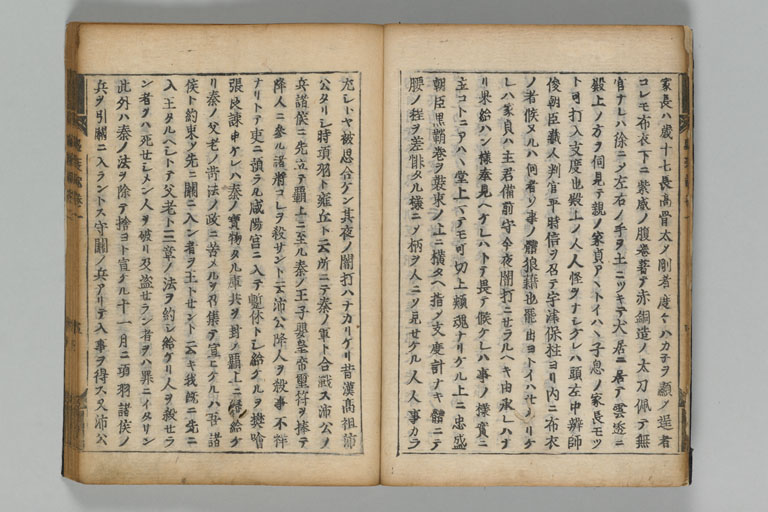 家長ハ歳十七長高骨太ノ剛者度々ハカヲ顕ノ逞者
コレモ布衣下ニ紫威ノ腹巻著テ赤銅造ノ太刀佩テ無
官ナレハ徐ニノ左右ノ手ヲ土ニツキテ犬居ニ居テ雲透ニ
殿上ノ方ヲ伺見テ親ノ家貞アハトイハヽ子息ノ家長モツ
ト可打入支度也殿上ノ人人怪ヲナシケレハ頭左中辨師
俊朝臣蔵人判官平時信ヲ召テ宇津保柱ヨリ内ニ布衣
ノ者候メルハ何者ソ事ノ體狼藉也罷出ヨトイハセケリケ
レハ家貞ハ主君備前守今夜闇打ニセラルヘキ由承レハナ
リ果給ハン様奉見ヘケレハトテ畏テ候ケレハ事ノ様實ニ
主コトニアハヽ堂上マテモ可切上頬魂ナリケル上ニ忠盛
朝臣黒鞘巻ヲ装束ノ上ニ横タヘ指ノ支度計ナキ體ニテ
腰ノ程ヲ差俳タル様ニノ柄ヲ人ニソ見セケル人人事カラ
充シトヤ被思合ケン其夜ノ闇打ハナカリケリ昔漢高祖沛
公タリシ時項羽ト雍丘ト云所ニテ秦ノ軍ト合戦ス沛公ノ
兵諸侯ニ先立テ覇上ニ至ル秦ノ王子嬰皇帝璽符ヲ捧テ
降人ニ参ル諸将コレヲ殺サント云沛公降人ヲ殺事不祥
ナリトテ吏ニ預ラル咸陽宮ニ入テ暫休トシ給ケルヲ樊噲
張良諌申ケレハ秦ノ寶物タル庫共ヲ封ノ覇上ニ歸給ケ
リ秦ノ父老ノ苛法ノ政ニ苦メルヲ召集テ宣ヒケルハ吾諸
侯ト約束ソ先ニ關ニ入ン者ヲ王トセント云キ我既ニ先ニ
入王タルヘシトテ父老ト三章ノ法ヲ約シ給ケリ人ヲ殺セラ
ン者ヲハ死セシメン人ヲ破リ及盗セラン者ヲハ罪ニイタサン
此外ハ秦ノ法ヲ除テ捨ヨト宣ケル十一月ニ項羽諸侯ノ
兵ヲ引關ニ入ラントス守關ノ兵アリテ入事ヲ得ス又沛公